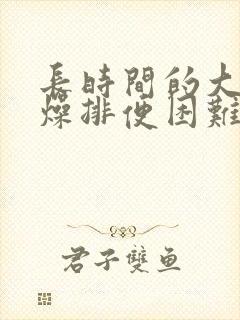 長時間的大
燥排便困難
君子雙魚